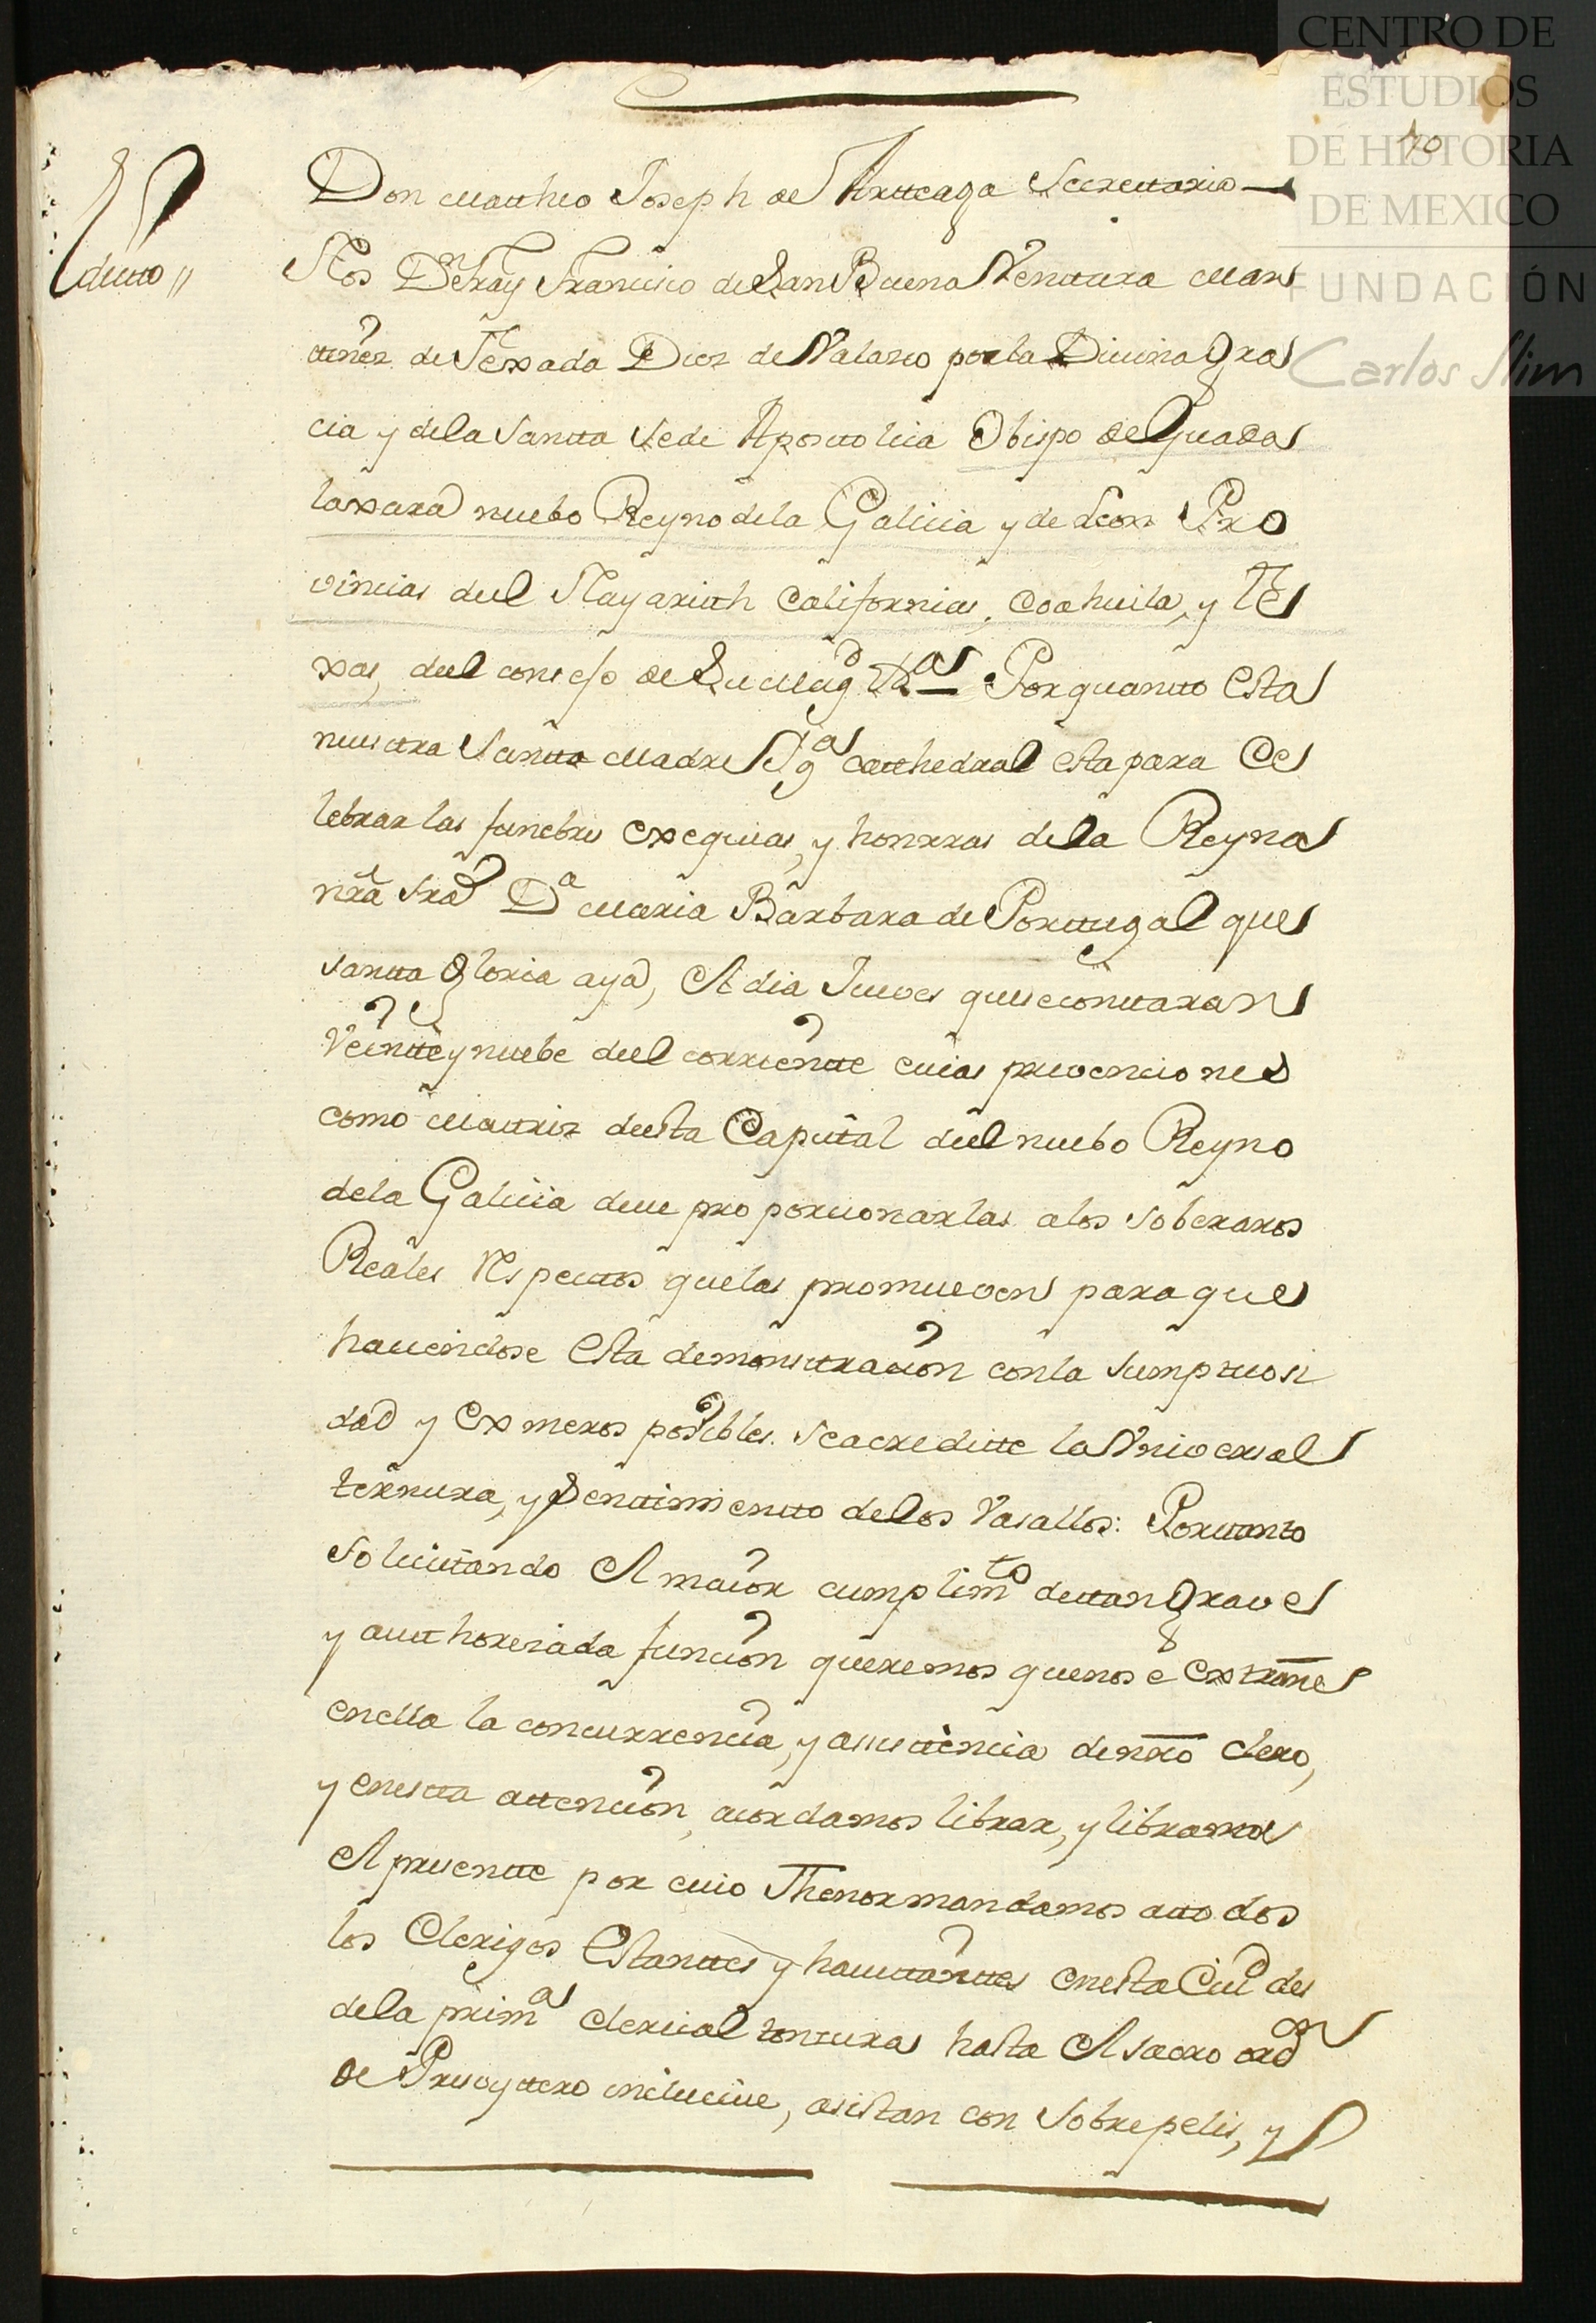 CENTRO DE
ESTUDIOS
DE HISTORIA
DE MEXICO
FUNDACIÓN
Carlos Slim
10
Don Mattheo Joseph de Artteaga Secrettario
Nos Dn Fray Francisco de San Buena Venttura Mar
ttinez de Texada Diez de Velasco por la Divina gra
cia y de la Santta Sede Aposttolica Obispo de Guada
laxara nuebo Reyno de la Galicia y de Leon Pro
vincias deel Nayaritth Californias, Coahuila, y Te
xas, deel consejo de Su Magd &a Por quantto esta
nuesttra Santta Madre Yga Catthedral esta para Ce
lebrar las funebres exequias, y honrras de la Reyna
nra sra Da Maria Barbara de Porttugal que
santta gloria aya, El dia Jueves que se conttaran
Veintte y nuebe deel corrientte cuias prevenciones
como Mattriz de esta Capittal deel nuebo Reyno
de la Galicia deve proporcionarlas a los soberanos
Reales Respecttos que las promueven para que
haciendose esta demonsttracion con la sumptuosi
dad y exmeros posibles. se acreditte la Universal
ternura, y Senttimientto de los Vasallos: Por tanto
solicittando El maior cumplimto de ttan grave
y autthorizada funcion queremos que no se extrañe
en ella la concurrencia, y asisttencia de nro Clero,
y en estta attencion, acordamos librar, y libramos
El presentte por cuio Thenor mandamos a ttodos
los Clerigos Estanttes y havittanttes en esta Ciud des
de la prima clerical tonsura hasta El sacro ordn
de Presvyttero inclucive, asistan con Sobrepelis, y